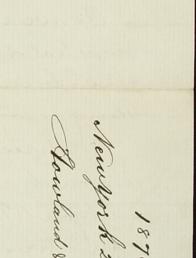 187
New York 2
Howland &